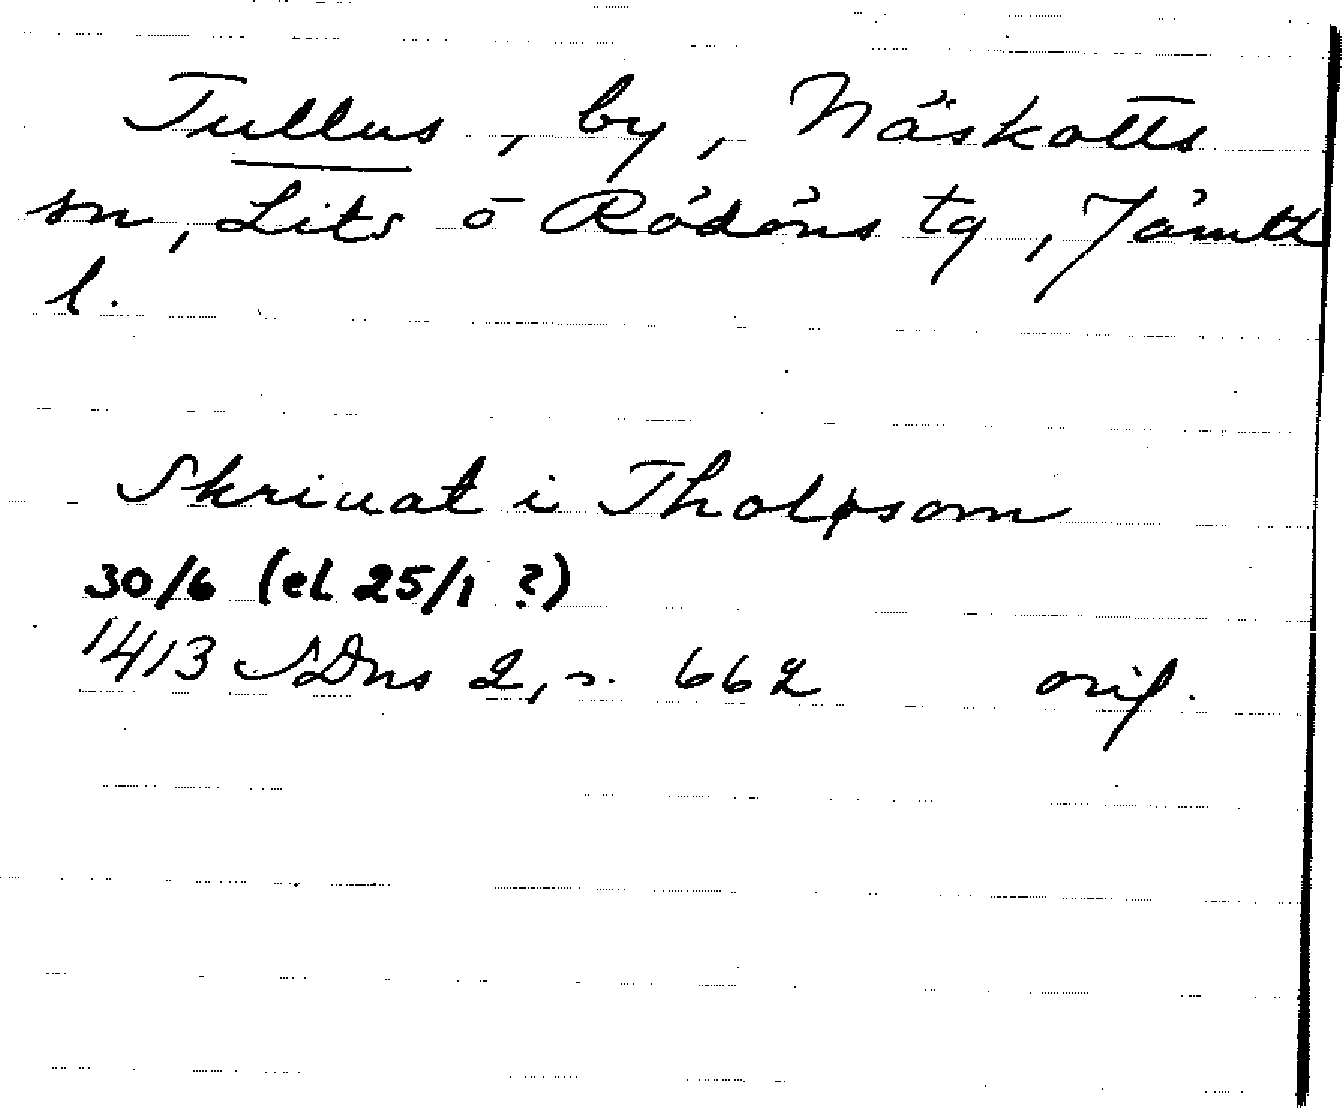 Tullus, by, Näskotts
sn, Lits o Rödöns tg, Jämtl
l.
Skriuat i Tholpsom
30/6 (el 25/1 ?)
1413 SDns 2, s. 662 orig.